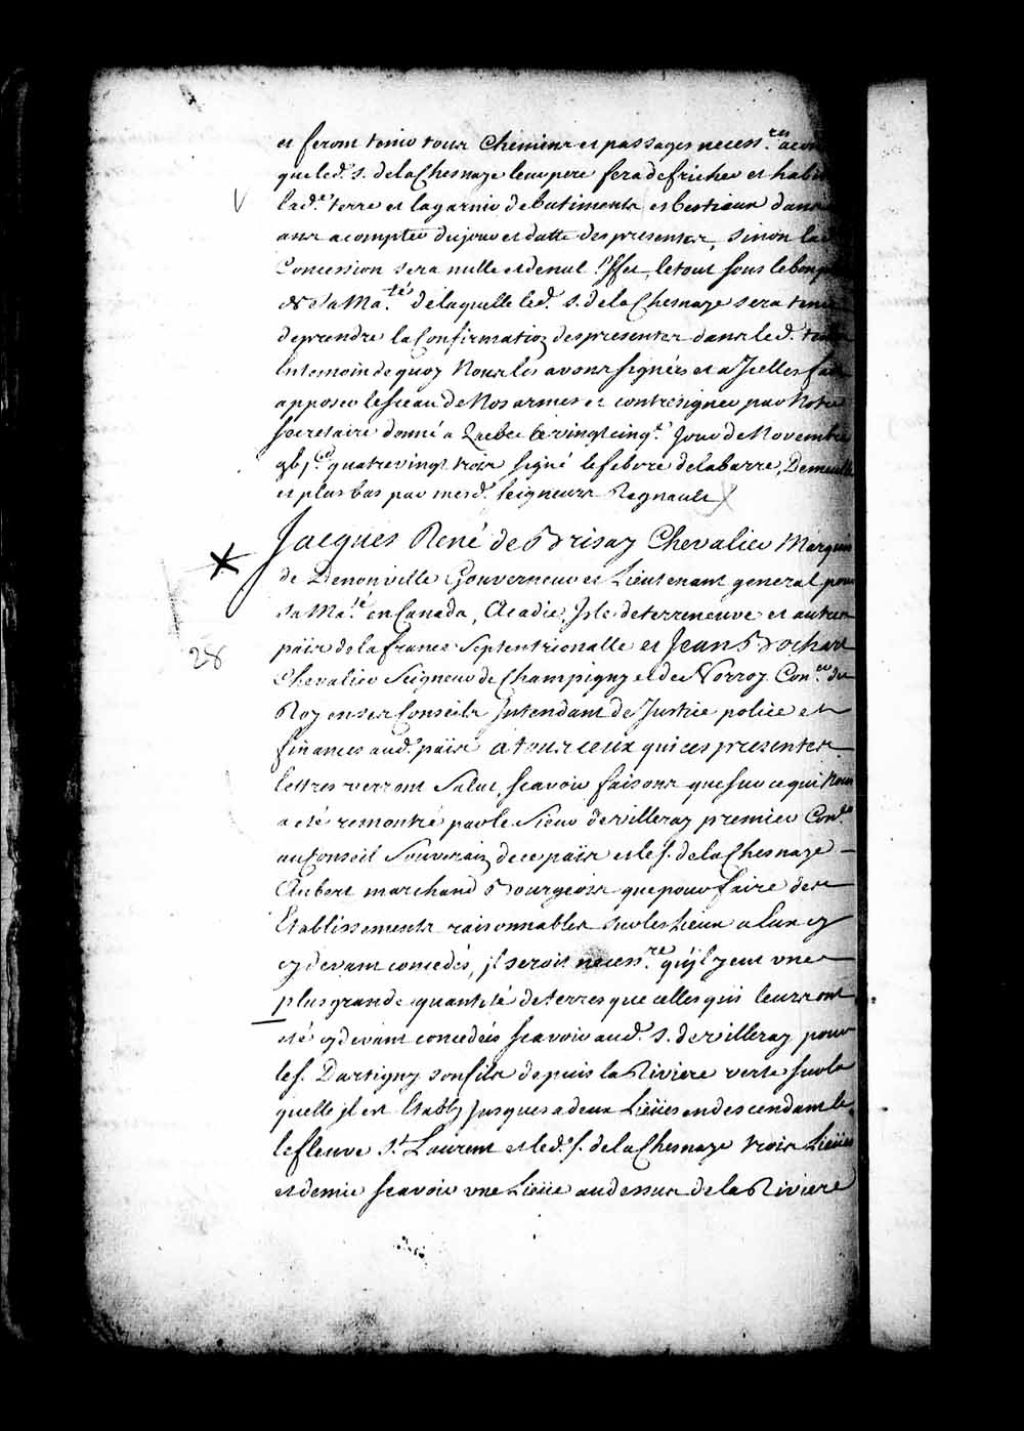 et feront tenir tous Chemins et passages necess.res
que led. s. de la Chesnaye leur pere fera defricher et
lad.e terre et la garnir de batiments et bestiaux dans
ans a compter du jour et datte des presentes, sinon
Concession sera nulle et de nul Effet, le tout sous le bon
de sa Ma.té de laquelle led. s. de la Chesnaye sera
de prendre la Confirmation des presentes dans led.
En temoin de quoy Nous les avons signées et a Icelles
apposer le sceau de Nos armes et contresigner par Notre
secretaire donné a Quebec le vingt cinq.e Jour de Novembre
quatre vingt trois signé le febvre de la barre, Demeulle
et plus bas par mesd. seigneurs Regnault
Jacques René de Brisay Chevalier Marquis
de Denonville Gouverneur et Lieutenant general pour
28
sa Ma.té en Canada, Acadie, Isle de terreneuve et autres
païs de la france Septentrionalle et Jean Bochart
Chevalier Seigneur de Champigny et de Norroy Con.er du
Roy en ses Conseils Intendant de Justice police et
finances aud. païs a tous ceux qui ces presentes
lettres verront Salut, scavoir faisons que sur ce qui Nous
a eté remontré par le Sieur de villeray premier Con.er
au Conseil Souverain de ce païs et le s. de la Chesnaye
Aubert marchand Bourgeois que pour faire des
Etablissements raisonnables sur les lieux a Eux cy
cy devant concedés, il seroit necess.re qu'il y eut une
plus grande quantité de terres que celles qui leurs ont
eté cy devant concedées scavoir aud. s. de villeray pour
le s. Dartigny son fils depuis la Riviere verte sur la
quelle il est Etably jusques a deux Lieües en descendant le
le fleuve St Laurent et led. s. de la Chesnaye trois Lieües
et demie scavoir une Lieüe au dessus de la Riviere